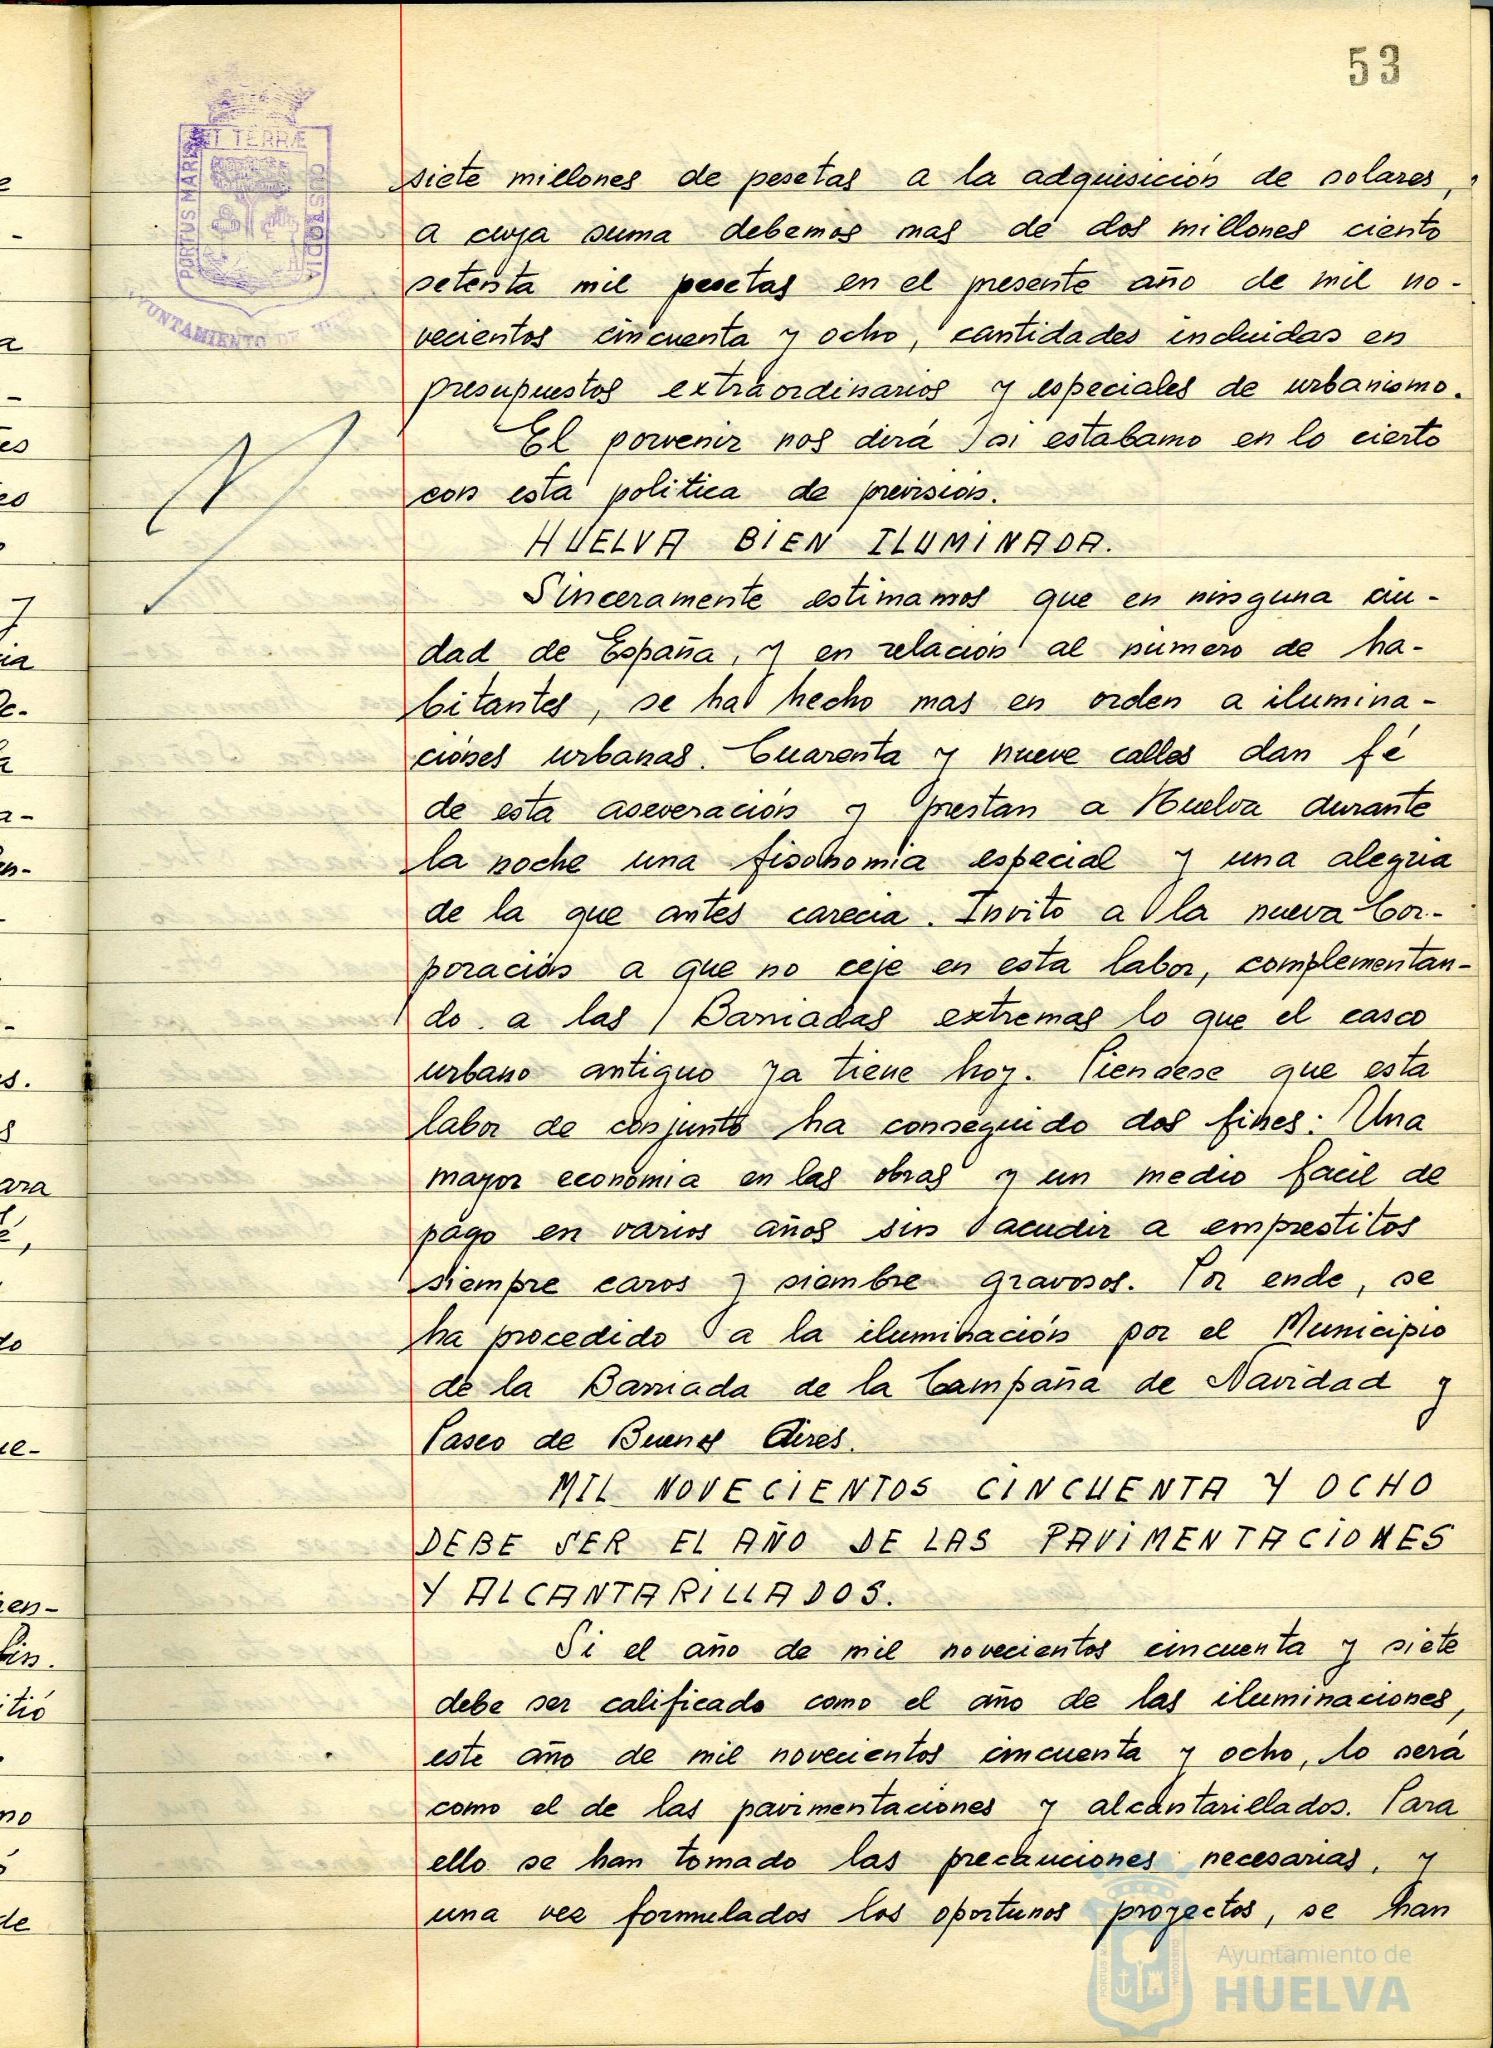 53
PORTUS MARIS ET TERRÆ CUSTODIA
AYUNTAMIENTO DE
siete millones de pesetas a la adquisición de solares,
a cuya suma debemos mas de dos millones ciento
setenta mil pesetas en el presente año de mil no-
vecientos cincuenta y ocho, cantidades incluidas en
presupuestos extraordinarios y especiales de urbanismo.
El porvenir nos dirá si estabamo en lo cierto
con esta politica de previsión.
HUELVA BIEN ILUMINADA.
Sinceramente estimamos que en ninguna ciu-
dad de España, y en relación al número de ha-
bitantes, se ha hecho mas en orden a ilumina-
ciónes urbanas. Cuarenta y nueve calles dan fé
de esta aseveración y prestan a Huelva durante
la noche una fisonomia especial y una alegria
de la que antes carecia. Invito a la nueva Cor-
poración a que no ceje en esta labor, complementan-
do a las Barriadas extremas lo que el casco
urbano antiguo ya tiene hoy. Piensese que esta
labor de conjunto ha conseguido dos fines: Una
mayor economia en las obras y un medio facil de
pago en varios años sin acudir a emprestitos
siempre caros y siembre gravosos. Por ende, se
ha procedido a la iluminación por el Municipio
de la Barriada de la Campaña de Navidad y
Paseo de Buenos Aires.
MIL NOVECIENTOS CINCUENTA Y OCHO
DEBE SER EL AÑO DE LAS PAVIMENTACIONES
Y ALCANTARILLADOS.
Si el año de mil novecientos cincuenta y siete
debe ser calificado como el año de las iluminaciones,
este año de mil novecientos cincuenta y ocho, lo será
como el de las pavimentaciones y alcantarillados. Para
ello se han tomado las precauciones necesarias, y
una vez formulados los oportunos proyectos, se han
Ayuntamiento de
HUELVA